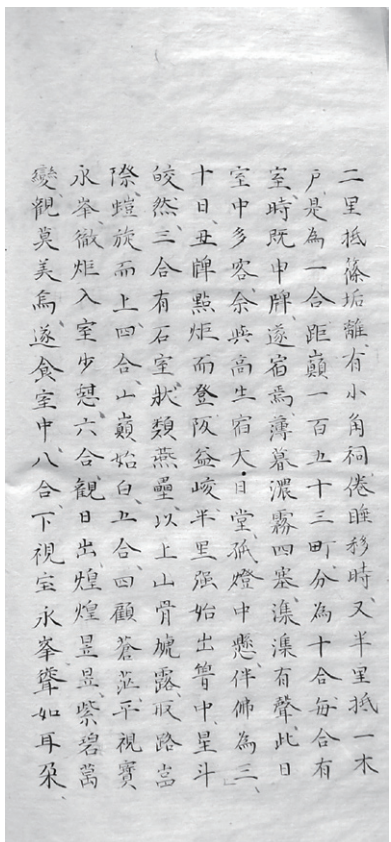 二里抵篠垢離、有小角祠、倦睡移時、又半里抵一木
戶、是為一合、距巔一百五十三町、分為十合、每合有
室、時既申牌、遂宿焉、薄暮濃霧四塞、漐漐有聲、此日
室中多客、余與高生宿大日堂、孤燈中懸、伴佛為三、
十日、丑牌點炬而登、阪益峻、半里强始出箐中、星斗
皎然、三合有石室、狀類燕壘、以上山骨㟴露、仄路當
際、螘旋而上、四合、山巔始白、五合、四顧蒼茫、平視寶
永峯、徹炬入室少憩、六合觀日出、煌煌昱昱、紫碧萬
變、觀莫美焉、遂食室中、八合、下視宝永峯、聳如耳朶、